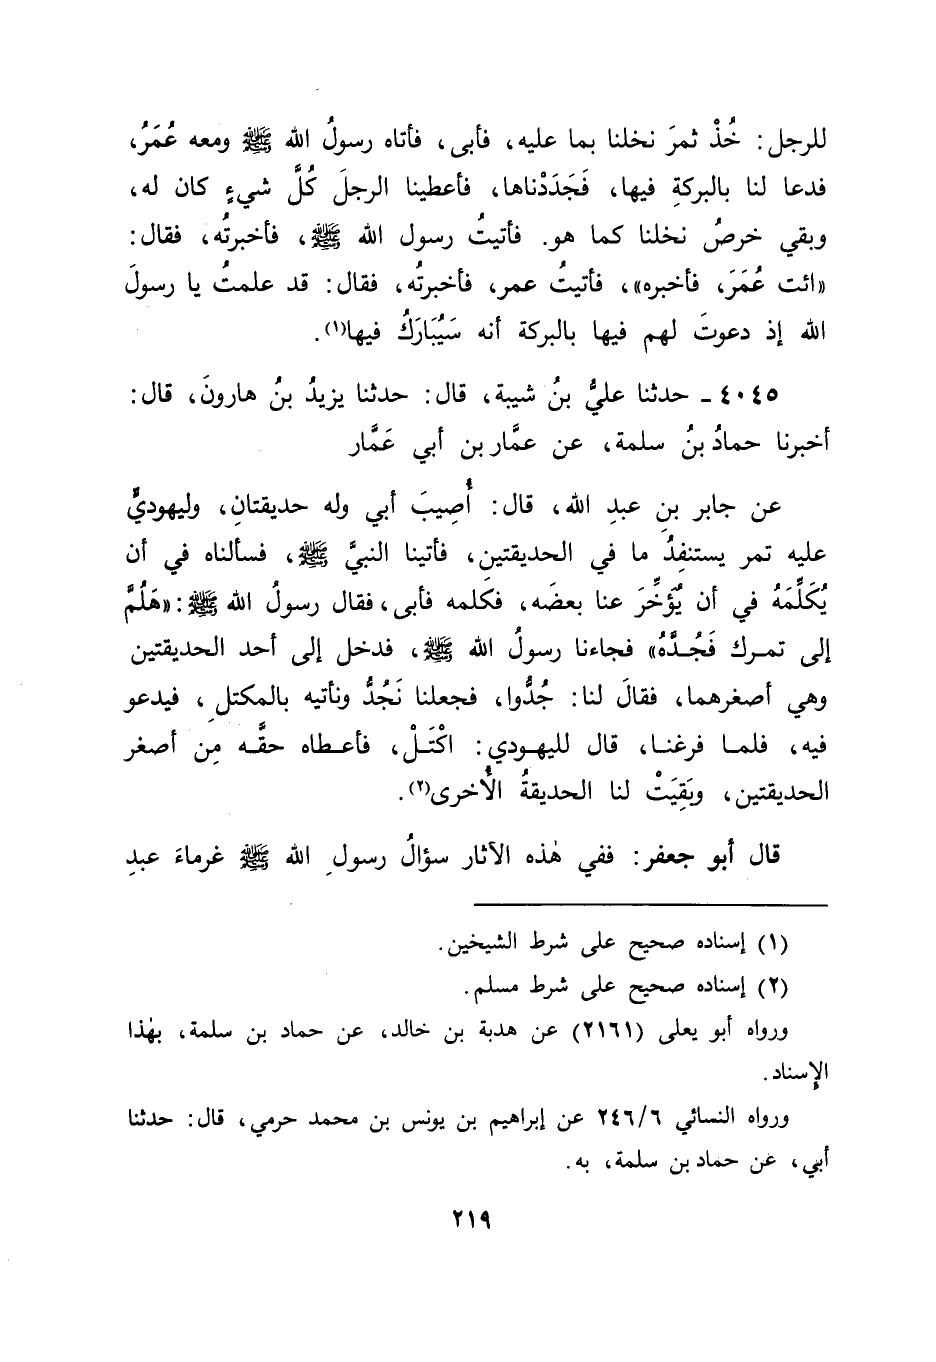 للرجل: خُذْ ثمرَ نخلنا بما عليه، فأبى، فأتاه رسولُ الله ﷺ ومعه عُمَرُ،
فدعا لنا بالبركةِ فيها، فَجَدَدْناها، فأعطينا الرجلَ كُلَّ شيءٍ كان له،
وبقي خرصُ نخلنا كما هو. فأتيتُ رسول الله ﷺ، فأخبرتُه، فقال:
«ائت عُمَرَ، فأخبره»، فأتيتُ عمر، فأخبرتُه، فقال: قد علمتُ يا رسولَ
الله إذ دعوتَ لهم فيها بالبركة أنه سَيُبَارَكُ فيها(١).
٤٠٤٥ - حدثنا عليُّ بنُ شيبة، قال: حدثنا يزيدُ بنُ هارونَ، قال:
أخبرنا حمادُ بنُ سلمة، عن عمَّار بن أبي عَمَّار
عن جابر بنِ عبدِ الله، قال: أُصِيبَ أبي وله حديقتانِ، وليهوديٍّ
عليه تمر يستنفِدُ ما في الحديقتين، فأتينا النبيَّ ﷺ، فسألناه في أن
يُكَلِّمَهُ في أن يُؤَخِّرَ عنا بعضَه، فكلمه فأبى، فقال رسولُ الله ﷺ: «هَلُمَّ
إلى تمرك فَجُدَّهُ» فجاءنا رسولُ الله ﷺ، فدخل إلى أحد الحديقتين
وهي أصغرهما، فقالَ لنا: جُدُّوا، فجعلنا نَجُدُّ ونأتيه بالمكتلِ، فيدعو
فيه، فلما فرغنا، قال لليهودي: اكْتَلْ، فأعطاه حقَّه مِن أصغر
الحديقتين، وبَقِيَتْ لنا الحديقةُ الأُخرى(٢).
قال أبو جعفر: ففي هٰذه الآثار سؤالُ رسولِ الله ﷺ غرماءَ عبدِ
(١) إسناده صحيح على شرط الشيخين.
(٢) إسناده صحيح على شرط مسلم.
ورواه أبو يعلى (٢١٦١) عن هدبة بن خالد، عن حماد بن سلمة، بهٰذا
الإِسناد.
ورواه النسائي ٢٤٦/٦ عن إبراهيم بن يونس بن محمد حرمي، قال: حدثنا
أبي، عن حماد بن سلمة، به.
٢١٩